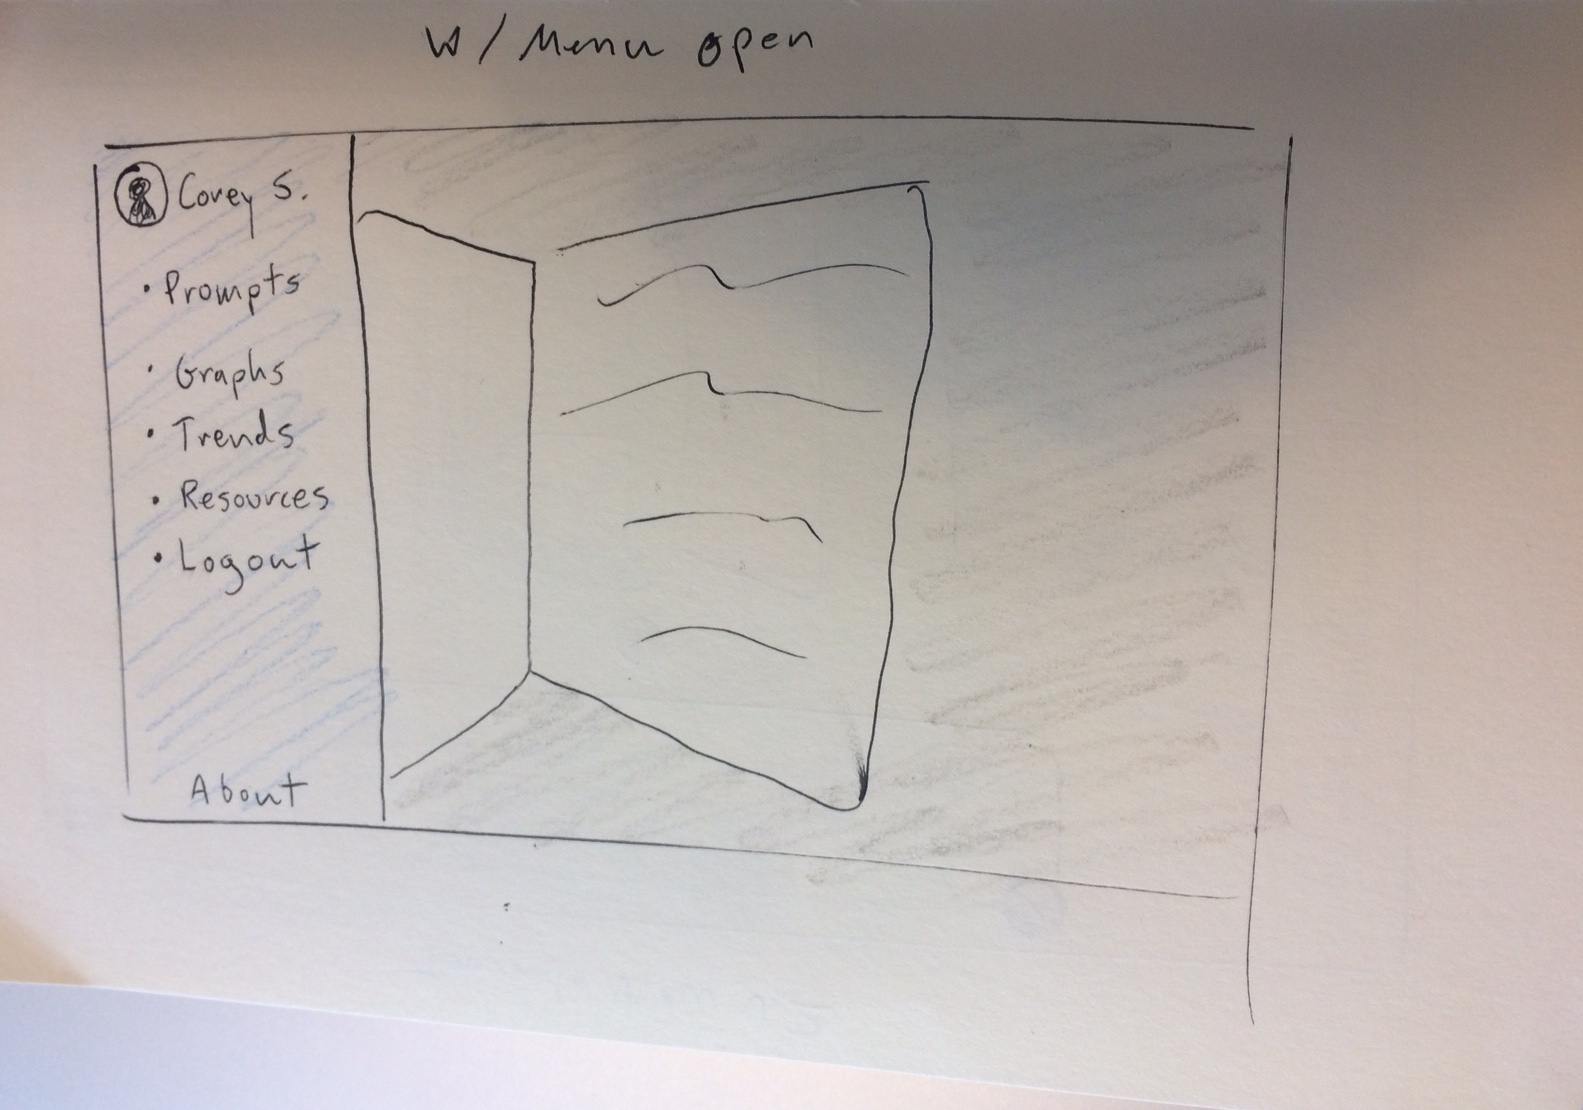 W/Menu open
Corey S.
• Prompts
• Graphs
• Trends
• Resources
• Logout
About